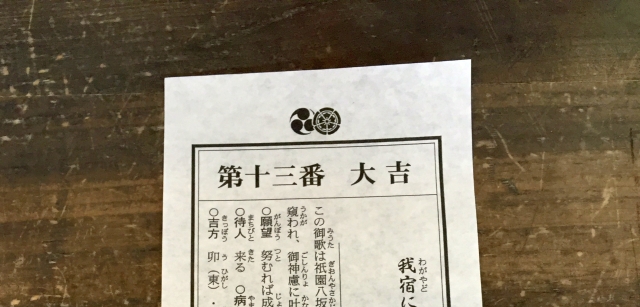 第十三番 大吉
我宿に
この御歌は祇園八坂
窺われ、御神慮に叶
○願望 努むれば成
○待人 来る ○病
○吉方 卯(東)・